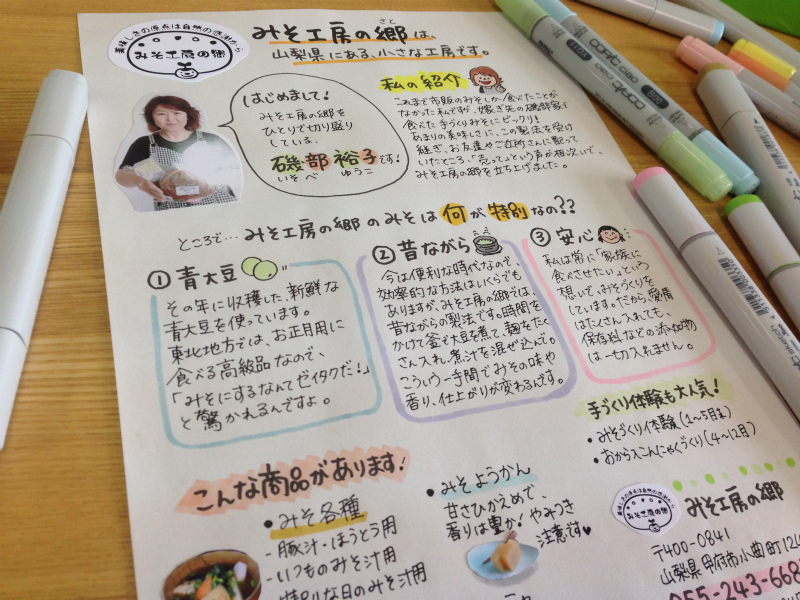 美味しさの原点は自然の恩謝から
みそ工房の郷
みそ工房の郷は、
さと
山梨県にある、小さな工房です。
はじめまして!
みそ工房の郷を
ひとりで切り盛り
している、
磯部裕子です!
いそべ ゆうこ
私の紹介
これまで市販のみそしか食べたことが
なかった私ですが、嫁ぎ先の磯部家で
食べた手づくりみそにビックリ!
あまりの美味しさに、この製法を受け
継ぎ、お友達やご近所さんに配って
いたところ、「売って」という声が相次いで、
みそ工房の郷を立ち上げました。
ところで…みそ工房の郷のみそは何が特別なの??
① 青大豆
その年に収穫した、新鮮な
青大豆を使っています。
東北地方では、お正月用に
食べる高級品なので、
「みそにするなんてゼイタクだ!」
と驚かれるんですよ。
② 昔ながら
今は便利な時代なので、
効率的な方法はいくらでも
ありますが、みそ工房の郷では、
昔ながらの製法です。時間を
かけて釜で大豆を煮て、麹をたく
さん入れ、煮汁を混ぜ込んで。
こういう一手間でみその味や
香り、仕上がりが変わるんです。
③ 安心
私は常に「家族に
食べさせたい」という
想いで、おみそづくりを
しています。だから、愛情
はたくさん入れても、
保存料などの添加物
は一切入れません。
手づくり体験も大人気!
・みそづくり体験(1〜5月末)
・おからこんにゃくづくり(4〜12月)
こんな商品があります!
・みそ各種
- 豚汁・ほうとう用
- いつものみそ汁用
- 特別な日のみそ汁用
・みそようかん
甘さひかえめで、
香りは豊か!やみつき
注意です♥
みそ工房の郷
みそ工房の郷
〒400-0841
山梨県甲府市小曲町124
055-243-668